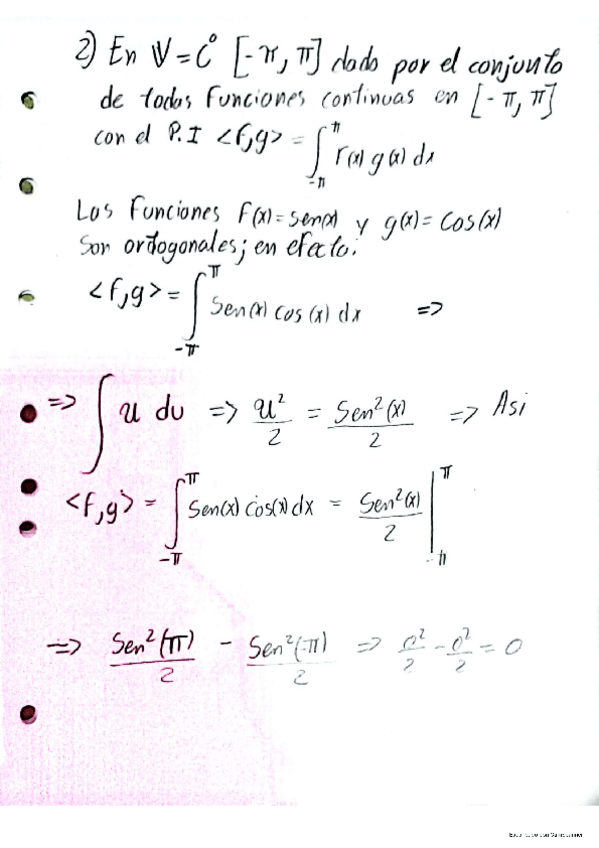 2) En V = C⁰ [-π, π] dado por el conjunto
de todas funciones continuas en [-π, π]
con el P.I <f,g> = ∫_{-π}^{π} f(x) g(x) dx
Las funciones f(x)=sen(x) y g(x)= cos(x)
son ortogonales; en efecto:
<f,g> = ∫_{-π}^{π} sen(x) cos (x) dx =>
=> ∫ u du => u²/2 = sen²(x)/2 => Asi
<f,g> = ∫_{-π}^{π} sen(x) cos(x) dx = sen²(x)/2 |_{-π}^{π}
=> sen²(π)/2 - sen²(-π)/2 => 0²/2 - 0²/2 = 0